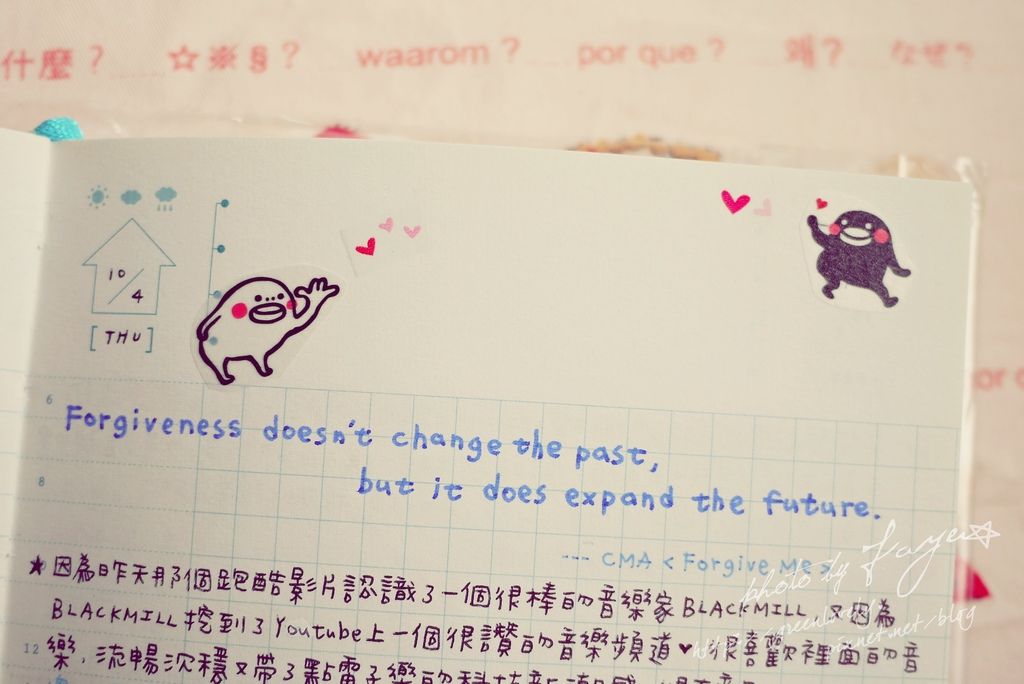 什麼? ☆※§? waarom? por que? 왜? なぜ?
10/4
[THU]
6
Forgiveness doesn't change the past,
8
but it does expand the future.
--- CMA <Forgive Me>
★因為昨天那個跑酷影片認識了一個很棒的音樂家BLACKMILL,又因為
BLACKMILL挖到了Youtube上一個很讚的音樂頻道♥很喜歡裡面的音
12
樂,流暢沉穩又帶了點電子樂的科技
photo by Kaye☆